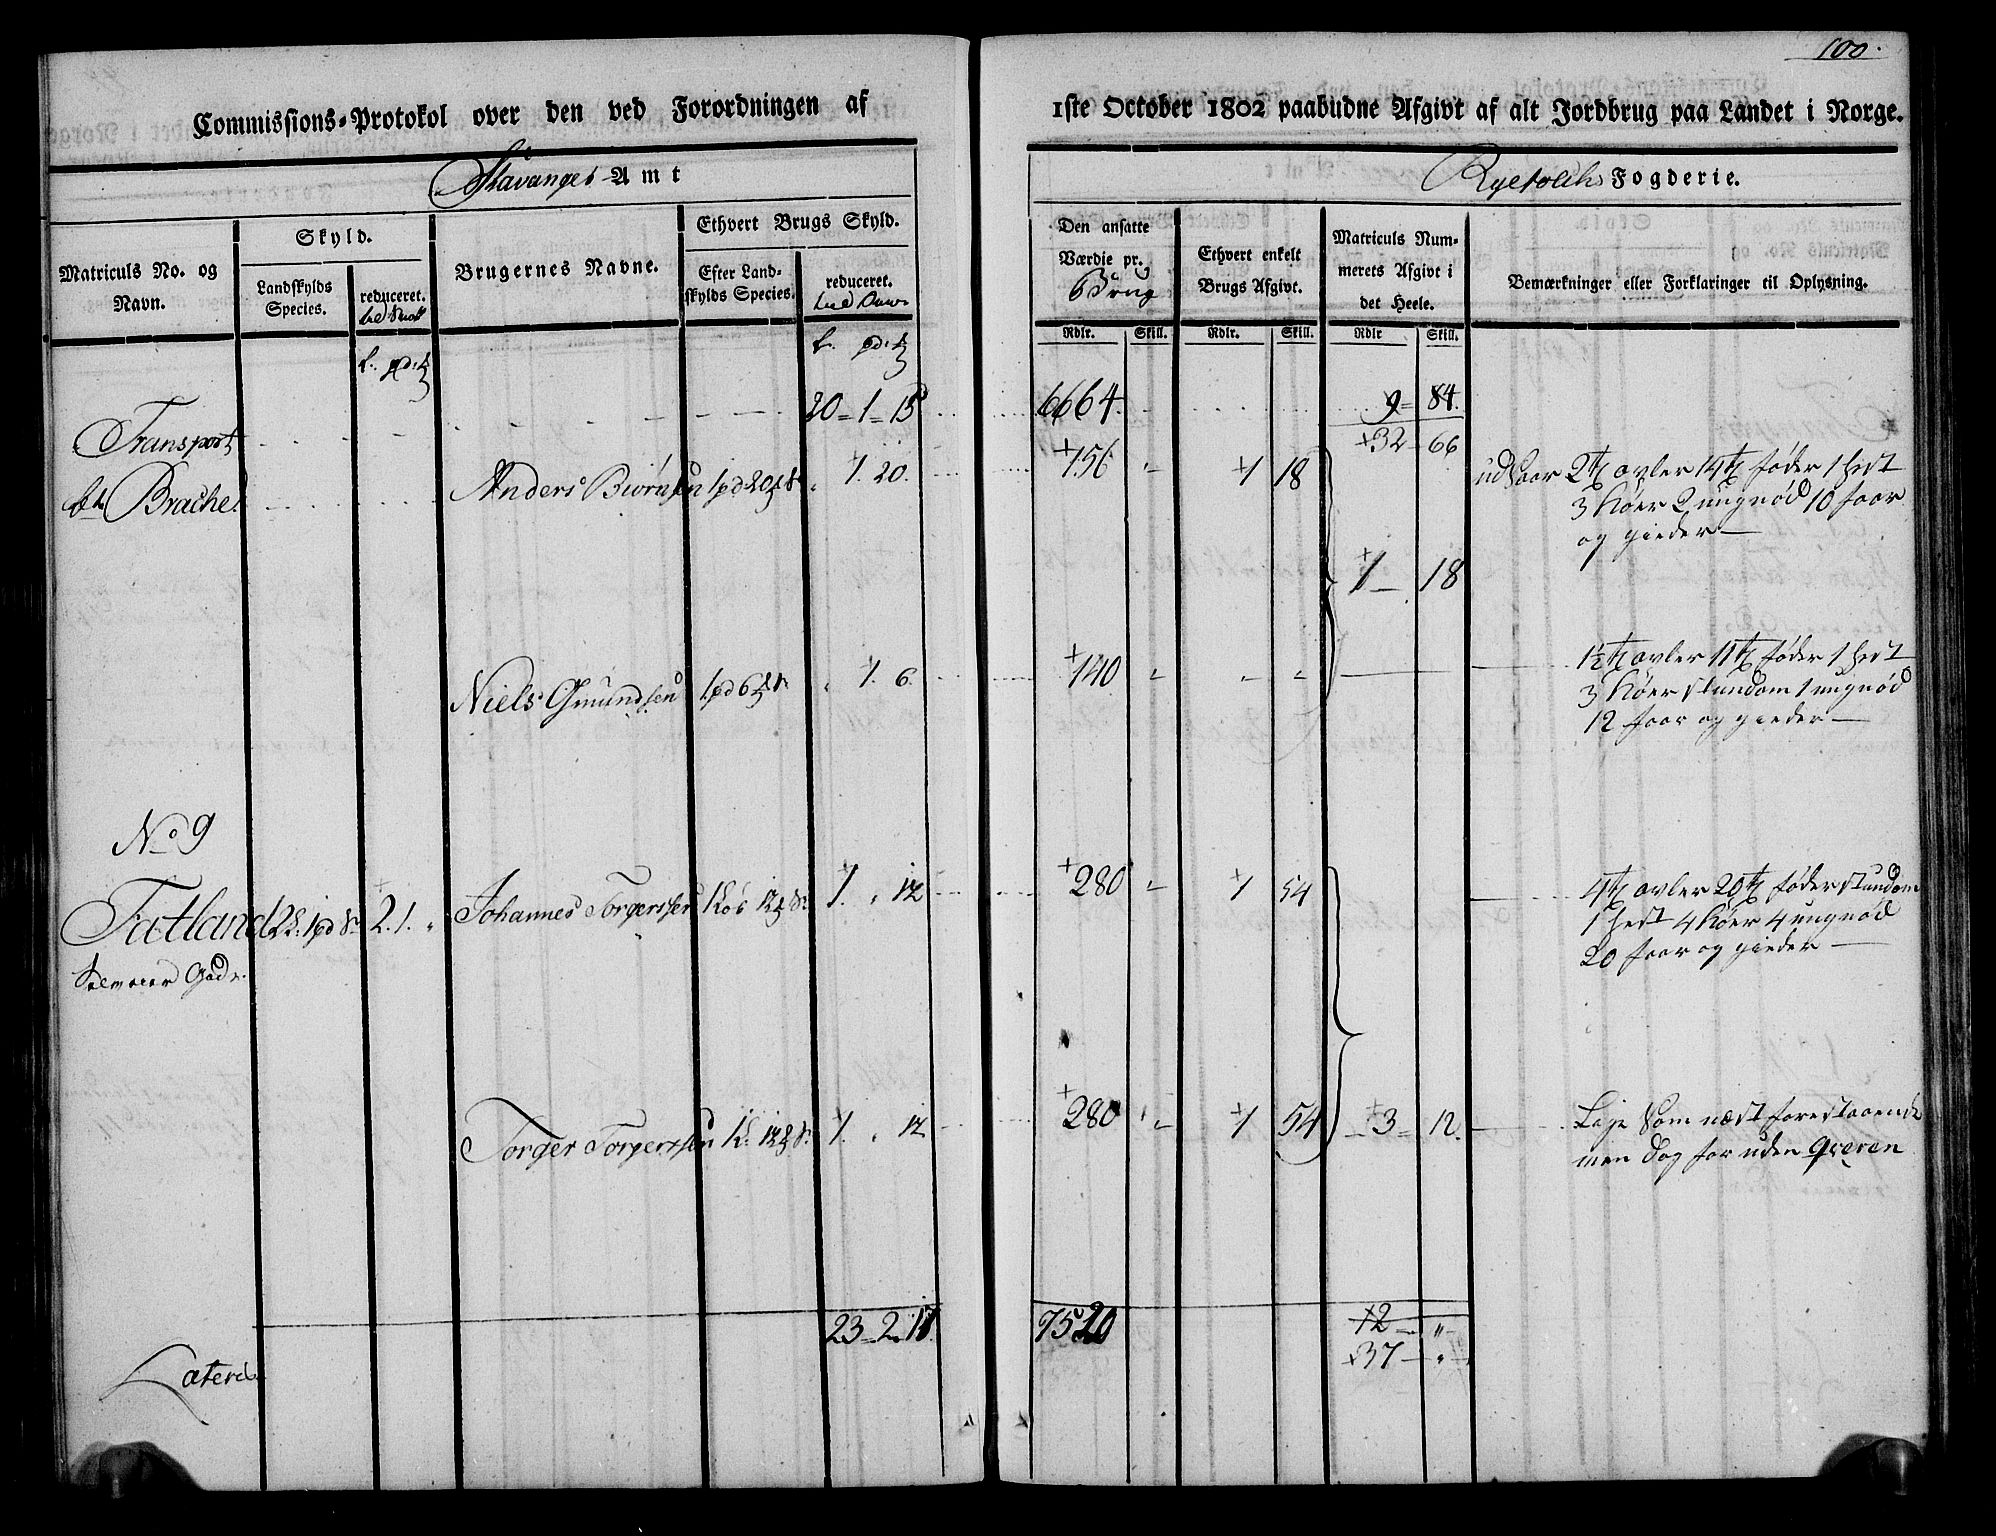 100.
Commissions-Protokol over den ved Forordningen af 1ste October 1802 paabudne Afgivt af alt Jordbrug paa Landet i Norge.
Stavanger Amt
Ryefolche Fogderie.
Matriculs No. og Navn.
Skyld.
Landskylds Species.
reduceret.
Brugernes Navne.
Ethvert Brugs Skyld.
Efter Landskylds Species.
reduceret.
Den ansatte Værdie pr.
Brug
Ethvert enkelt Brugs Afgivt.
Matriculs Nummerets Afgivt i det Heele.
Bemærkninger eller Forklaringer til Oplysning.
Rdlr. Skill. Rdlr. Skill. Rdlr Skill.
Transport 20 = 1 = 15 6664. 9 = 84.
+32 - 66
Brachel Anders Biørnsen 1 pd 20 1. 20. +156 " +1 18 2 avler 14 føder 1 hest
3 Køer 2 ungnød 10 faar
og gieder —
+1 — 18
Niels Gmundsen 1 pd 6 1. 6. +140 " " " 1½ avler 11 føder 1 hest
3 Køer stundom 1 ungnød
12 faar og gieder —
No 9
Fatland 2. 1. " Johannes Torgerssen 1. " 12 +280 " +1 54 4 avler 20 føder stundom
1 hest 4 Køer 4 ungnød
20 faar og gieder —
Torger Torgerssen 1. " 12 +280 " +1 54 +3 = 12. Lige som næst forestaaende
men dog for uden Qveren
23 = 2 = 17. 7520 12 — "
+37 — "
Lateris